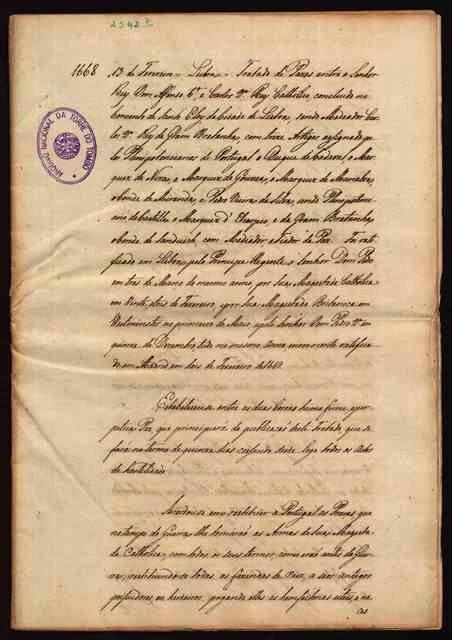 2542
1668
ARCHIVO NACIONAL DA TORRE DO TOMBO
13 de Fevereiro - Lisboa - Tratado de Pazes entre o Senhor
Rey Dom Affonso 6º e Carlos 2º Rey Catholico, concluido no
Convento de Santo Eloy da Cidade de Lisboa, sendo Mediador Car
los 2º Rey da Gram Bretanha, com treze Artigos assignado pe
los Plenipotenciarios de Portugal o Duque de Cadaval, o Mar
quez de Niza, o Marquez de Gouvea, o Marquez de Marialva,
o Conde de Miranda, e Pedro Vieira da Silva, sendo Plenipoten
ciario de Castella o Marquez d'
e da Gram Bretanha,
o Conde de Sandwich, com Mediador e Fiador da Paz. Foi rati
ficado em Lisboa, pelo Principe Regente, o Senhor Dom Pedro
em tres de Março do mesmo anno, por Sua Magestade Catholica
em Vinte tres de Fevereiro, e por Sua Magestade Britanica em
Westminster no primeiro de Maio, e pelo Senhor Dom Pedro 2º em
quinze de Dezembro
ratifica
do em Madrid em dous de Fevereiro de 1669.
Estabeleceu-se entre as duas Coroas huma firme, e per
petua Paz, que principiará da publicação deste Tratado, que se
fará no termo de quinze dias cessando desde logo todos os Actos
de hostilidade.
restituir a Portugal as Praças, que
no tempo da Guerra lhe tomarão as Armas de Sua Magesta
de Catholica, com todos os seus termos, como erão antes da Guer
ra, restituindo-se todas as fazendas de raiz, a seus antigos
possuidores ou herdeiros, pagando elles as bemfeitorias uteis, e ne
ces